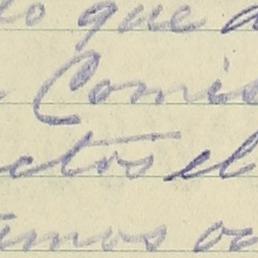 lo que
Comis
ctos el
imos oc